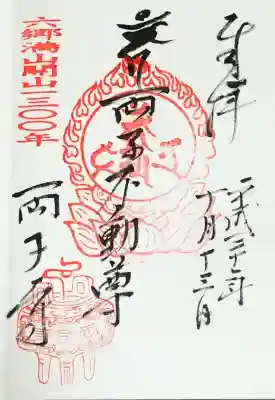 奉拝
平成三十年
十月十三日
両子不動尊
六郷満山開山一三〇〇年
両子寺